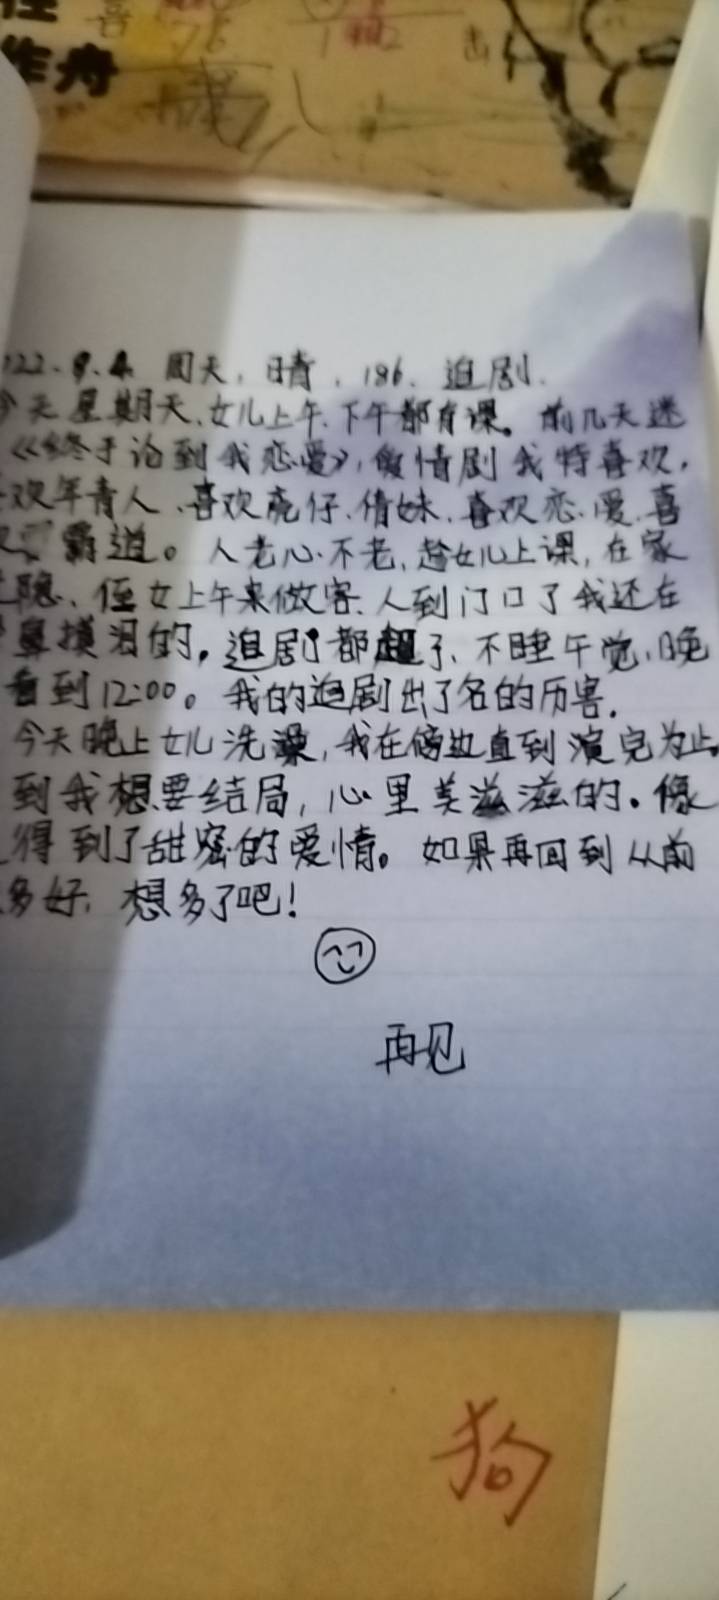 作舟
喜
022.9.4. 周天，晴，186. 追剧.
今天星期天、女儿上午、下午都有课。前几天迷
《终于论到我恋爱》，爱情剧我特喜欢，
欢年青人、喜欢亮仔、倩妹、喜欢恋爱、喜
霸道。人老心不老，趁女儿上课，在家
隐、侄女上午来做客、人到门口了我还在
鼻摸泪的。追剧都超了、不睡午觉，晚
看到12:00。我的追剧出了名的历害.
今天晚上女儿洗澡，我在傍边直到演完为止。
到我想要结局，心里美滋滋的。像
得到了甜密的爱情。如果再回到从前
多好，想多了吧！
再见
狗